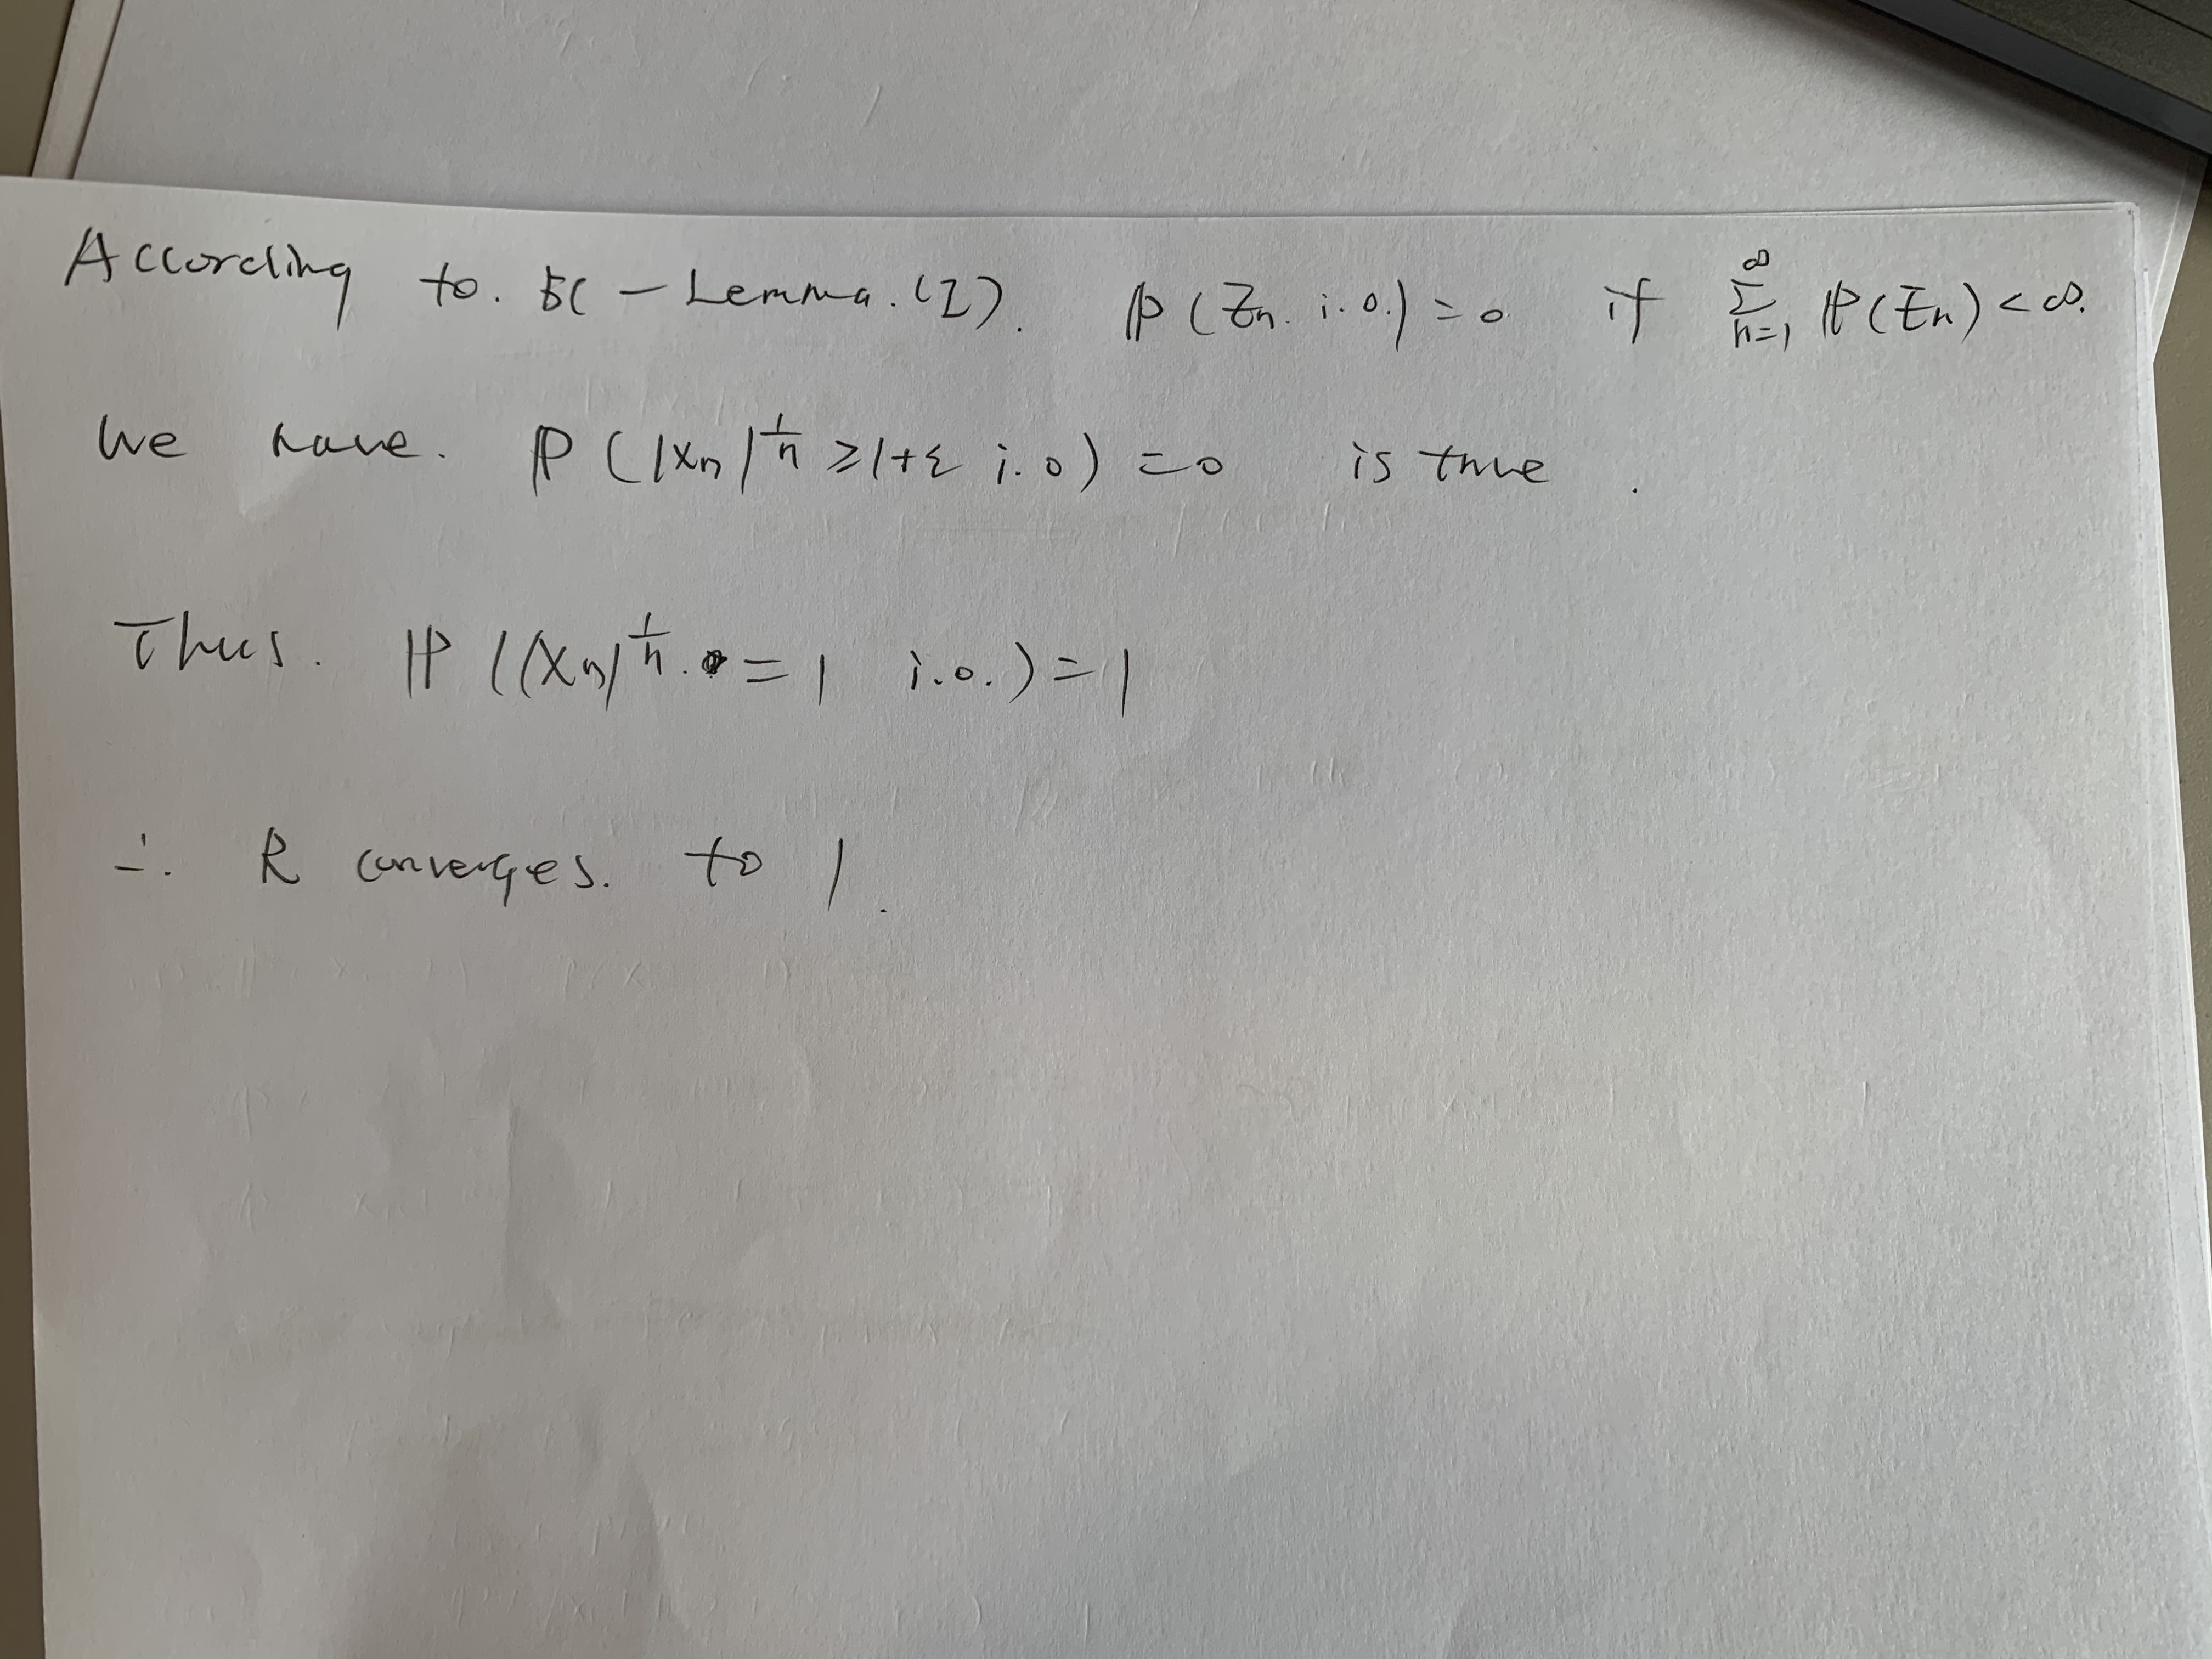 According to. BC - Lemma. (I). ℙ(En. i.o.) = 0 if ∑_{n=1}^{∞} ℙ(En) < ∞.
We have. ℙ(|Xn|^{1/n} ≥ 1+ε i.o) = 0 is true.
Thus. ℙ(|Xn|^{1/n}. = 1 i.o.) = 1
∴ R converges. to 1.